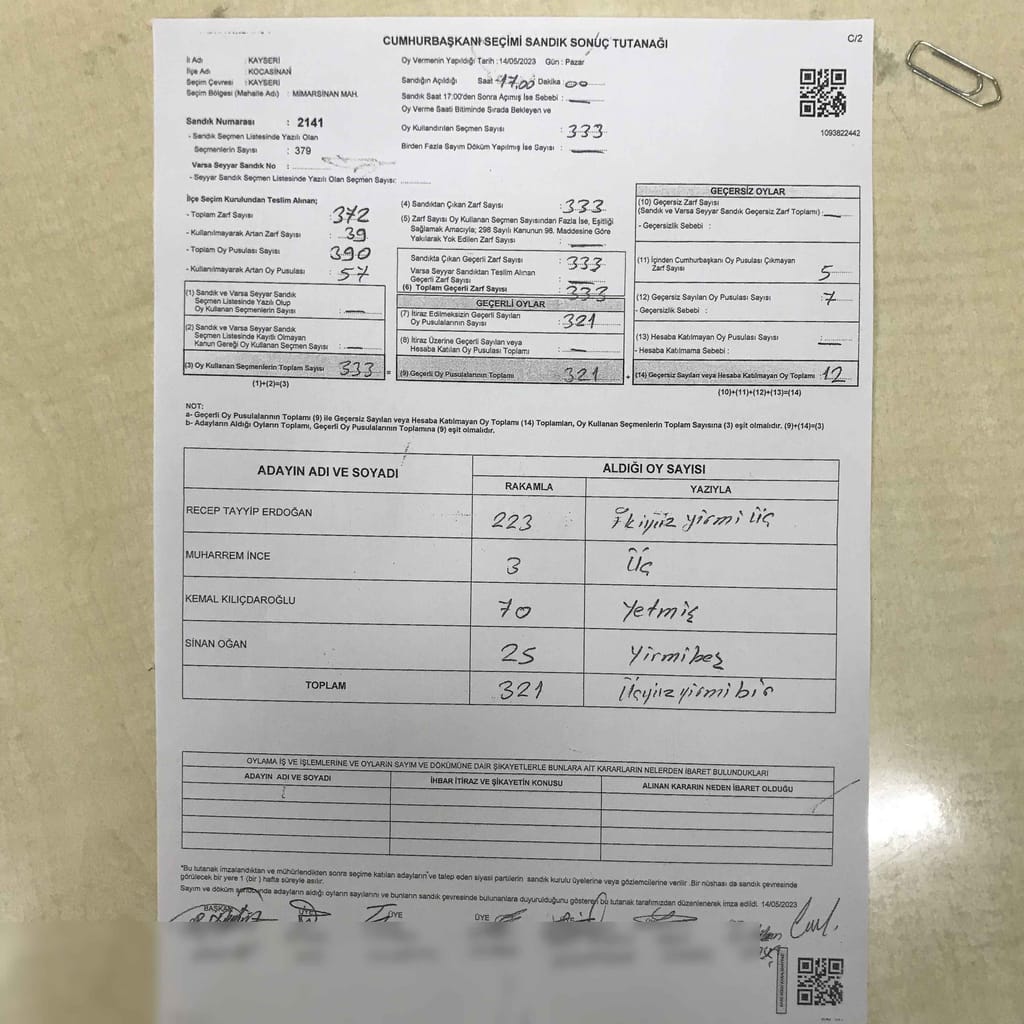 C/2
CUMHURBAŞKANI SEÇİMİ SANDIK SONUÇ TUTANAĞI
İl Adı : KAYSERİ
İlçe Adı : KOCASİNAN
Seçim Çevresi : KAYSERİ
Seçim Bölgesi (Mahalle Adı) : MİMARSİNAN MAH.
Oy Vermenin Yapıldığı Tarih : 14/05/2023 Gün : Pazar
Sandığın Açıldığı Saat 17.00 Dakika : 00
Sandık Saat 17:00'den Sonra Açımış İse Sebebi :
Oy Verme Saati Bitiminde Sırada Bekleyen ve
Oy Kullandırılan Seçmen Sayısı : 333
Birden Fazla Sayım Döküm Yapılmış İse Sayısı :
1093822442
Sandık Numarası : 2141
- Sandık Seçmen Listesinde Yazılı Olan
Seçmenlerin Sayısı : 379
Varsa Seyyar Sandık No :
- Seyyar Sandık Seçmen Listesinde Yazılı Olan Seçmen Sayısı:
İlçe Seçim Kurulundan Teslim Alınan;
- Toplam Zarf Sayısı : 372
- Kullanılmayarak Artan Zarf Sayısı : 39
- Toplam Oy Pusulası Sayısı : 390
- Kullanılmayarak Artan Oy Pusulası : 57
(1) Sandık ve Varsa Seyyar Sandık
Seçmen Listesinde Yazılı Olup
Oy Kullanan Seçmenlerin Sayısı : —
(2) Sandık ve Varsa Seyyar Sandık
Seçmen Listesinde Kayıtlı Olmayan
Kanun Gereği Oy Kullanan Seçmen Sayısı : —
(3) Oy Kullanan Seçmenlerin Toplam Sayısı : 333 =
(1)+(2)=(3)
(4) Sandıktan Çıkan Zarf Sayısı : 333
(5) Zarf Sayısı Oy Kullanan Seçmen Sayısından Fazla İse, Eşitliği
Sağlamak Amacıyla; 298 Sayılı Kanunun 98. Maddesine Göre
Yakılarak Yok Edilen Zarf Sayısı : —
Sandıkta Çıkan Geçerli Zarf Sayısı : 333
Varsa Seyyar Sandıktan Teslim Alınan
Geçerli Zarf Sayısı : —
(6) Toplam Geçerli Zarf Sayısı : 333
GEÇERLİ OYLAR
(7) İtiraz Edilmeksizin Geçerli Sayılan
Oy Pusulalarının Sayısı : 321
(8) İtiraz Üzerine Geçerli Sayılan veya
Hesaba Katılan Oy Pusulası Toplamı : —
(9) Geçerli Oy Pusulalarının Toplamı : 321 +
GEÇERSİZ OYLAR
(10) Geçersiz Zarf Sayısı
(Sandık ve Varsa Seyyar Sandık Geçersiz Zarf Toplamı) : —
- Geçersizlik Sebebi :
(11) İçinden Cumhurbaşkanı Oy Pusulası Çıkmayan
Zarf Sayısı : 5
(12) Geçersiz Sayılan Oy Pusulası Sayısı : 7
- Geçersizlik Sebebi :
(13) Hesaba Katılmayan Oy Pusulası Sayısı : —
- Hesaba Katılmama Sebebi :
(14) Geçersiz Sayılan veya Hesaba Katılmayan Oy Toplamı : 12
(10)+(11)+(12)+(13)=(14)
NOT:
a- Geçerli Oy Pusulalarının Toplamı (9) ile Geçersiz Sayılan veya Hesaba Katılmayan Oy Toplamı (14) Toplamları, Oy Kullanan Seçmenlerin Toplam Sayısına (3) eşit olmalıdır. (9)+(14)=(3)
b- Adayların Aldığı Oyların Toplamı, Geçerli Oy Pusulalarının Toplamına (9) eşit olmalıdır.
ADAYIN ADI VE SOYADI ALDIĞI OY SAYISI
RAKAMLA YAZIYLA
RECEP TAYYİP ERDOĞAN 223 İkiyüz yirmi üç
MUHARREM İNCE 3 Üç
KEMAL KILIÇDAROĞLU 70 Yetmiş
SİNAN OĞAN 25 Yirmibeş
TOPLAM 321 Üçyüzyirmibir
OYLAMA İŞ VE İŞLEMLERİNE VE OYLARIN SAYIM VE DÖKÜMÜNE DAİR ŞİKAYETLERLE BUNLARA AİT KARARLARIN NELERDEN İBARET BULUNDUKLARI
ADAYIN ADI VE SOYADI İHBAR İTİRAZ VE ŞİKAYETİN KONUSU ALINAN KARARIN NEDEN İBARET OLDUĞU
*Bu tutanak imzalandıktan ve mühürlendikten sonra seçime katılan adayların ve talep eden siyasi partilerin sandık kurulu üyelerine veya gözlemcilerine verilir .Bir nüshası da sandık çevresinde
görülecek bir yere 1 (bir ) hafta süreyle asılır.
Sayım ve döküm sonucunda adayların aldığı oyların sayılarını ve bunların sandık çevresinde bulunanlara duyurulduğunu gösteren bu tutanak tarafımızdan düzenlenerek imza edildi. 14/05/2023
BAŞKAN ÜYE ÜYE ÜYE